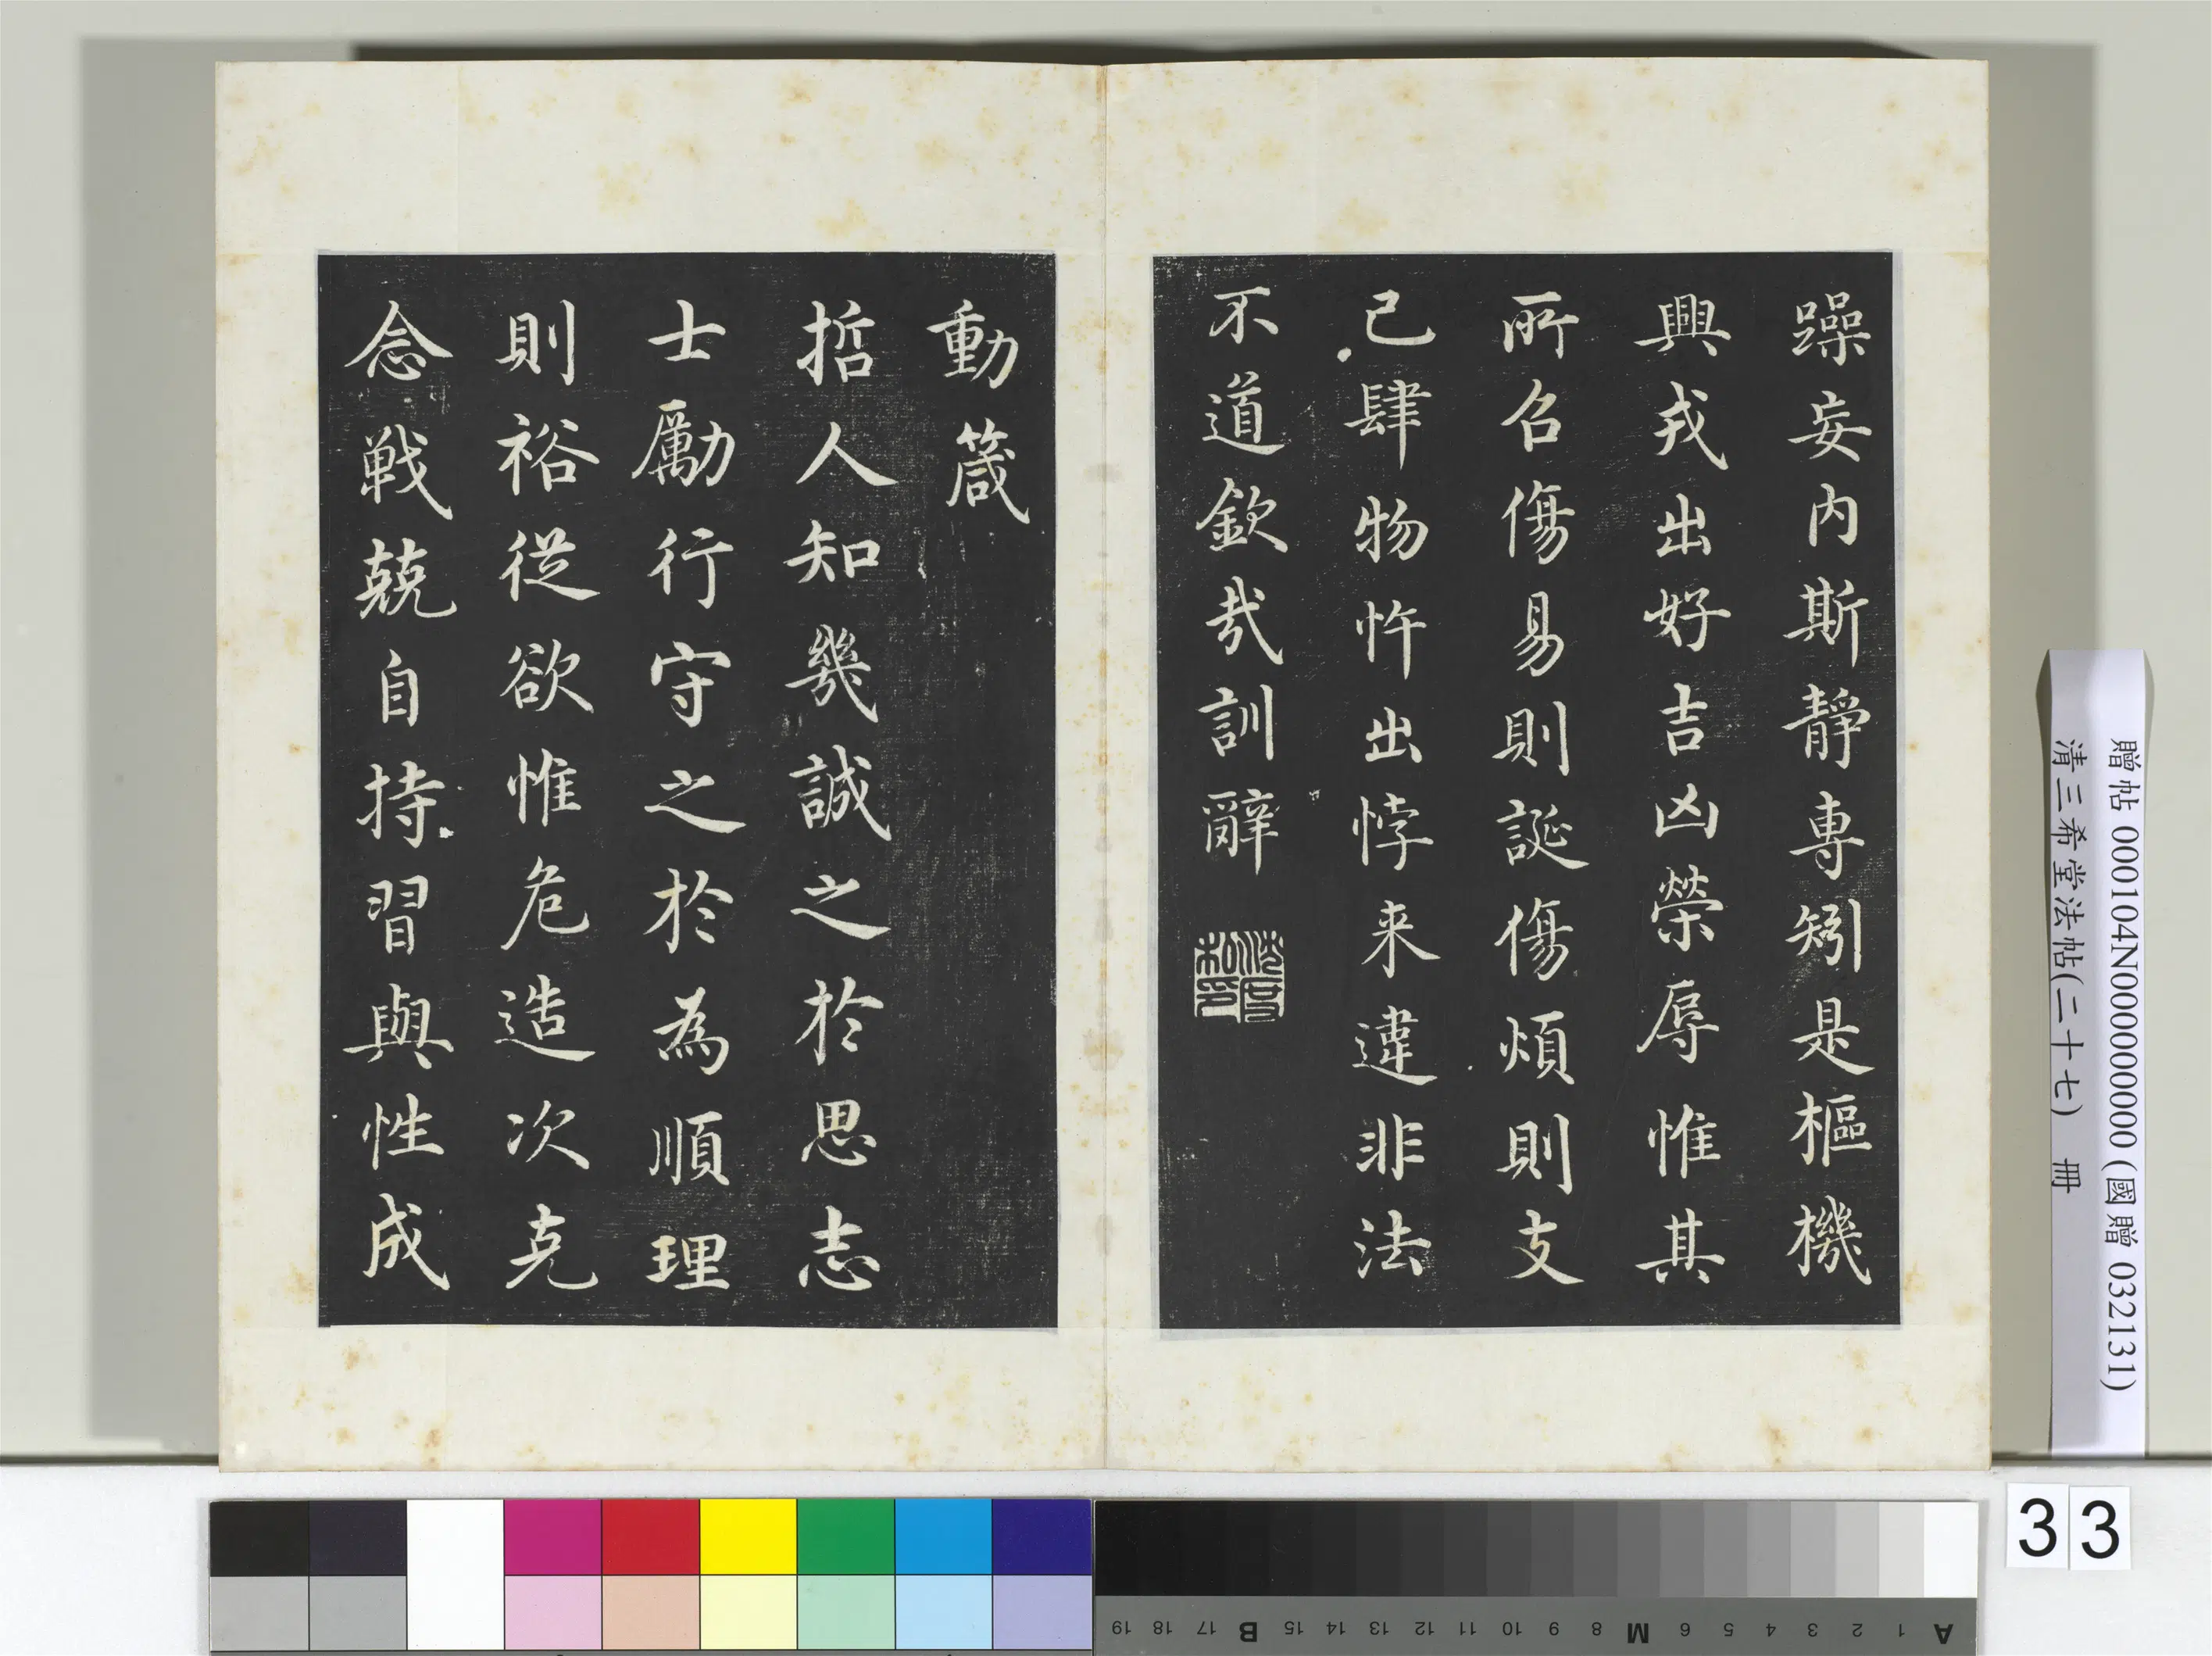 躁妄内斯靜専矧是樞機
興戎出好吉凶榮辱惟其
所召傷易則誕傷煩則支
己肆物忤出悖来違非法
不道欽哉訓辭
沈度私印
動箴
哲人知幾誠之於思志
士勵行守之於為順理
則裕從欲惟危造次克
念戦兢自持習與性成
贈帖 000104N000000000 (國贈 032131)
清三希堂法帖(二十七) 冊
33
A 1 2 3 4 5 6 M 8 9 10 11 12 13 14 15 B 17 18 19